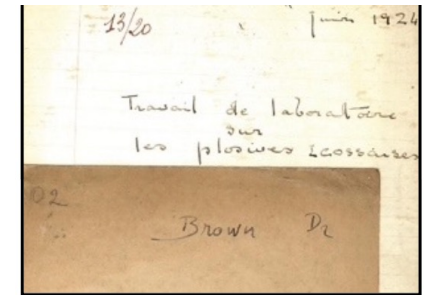 13/20
juin 1924
Travail de laboratoire
sur
les plosives écossaises
02
Brown Dr